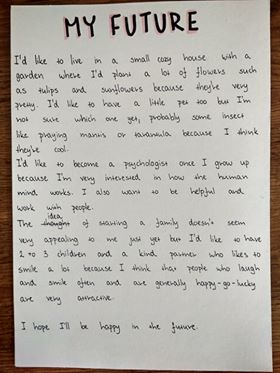 MY FUTURE
I'd like to live in a small cozy house with a
garden where I'd plant a lot of flowers such
as tulips and sunflowers because they're very
pretty. I'd like to have a little pet too but I'm
not sure which one yet, probably some insect
like praying mantis or tarantula because I think
they're cool.
I'd like to become a psychologist once I grow up
because I'm very interested in how the human
mind works. I also want to be helpful and
work with people.
idea
The thought of starting a family doesn't seem
very appealing to me just yet but I'd like to have
2 to 3 children and a kind partner who likes to
smile a lot because I think that people who laugh
and smile often and are generally happy-go-lucky
are very attractive.
I hope I'll be happy in the future.